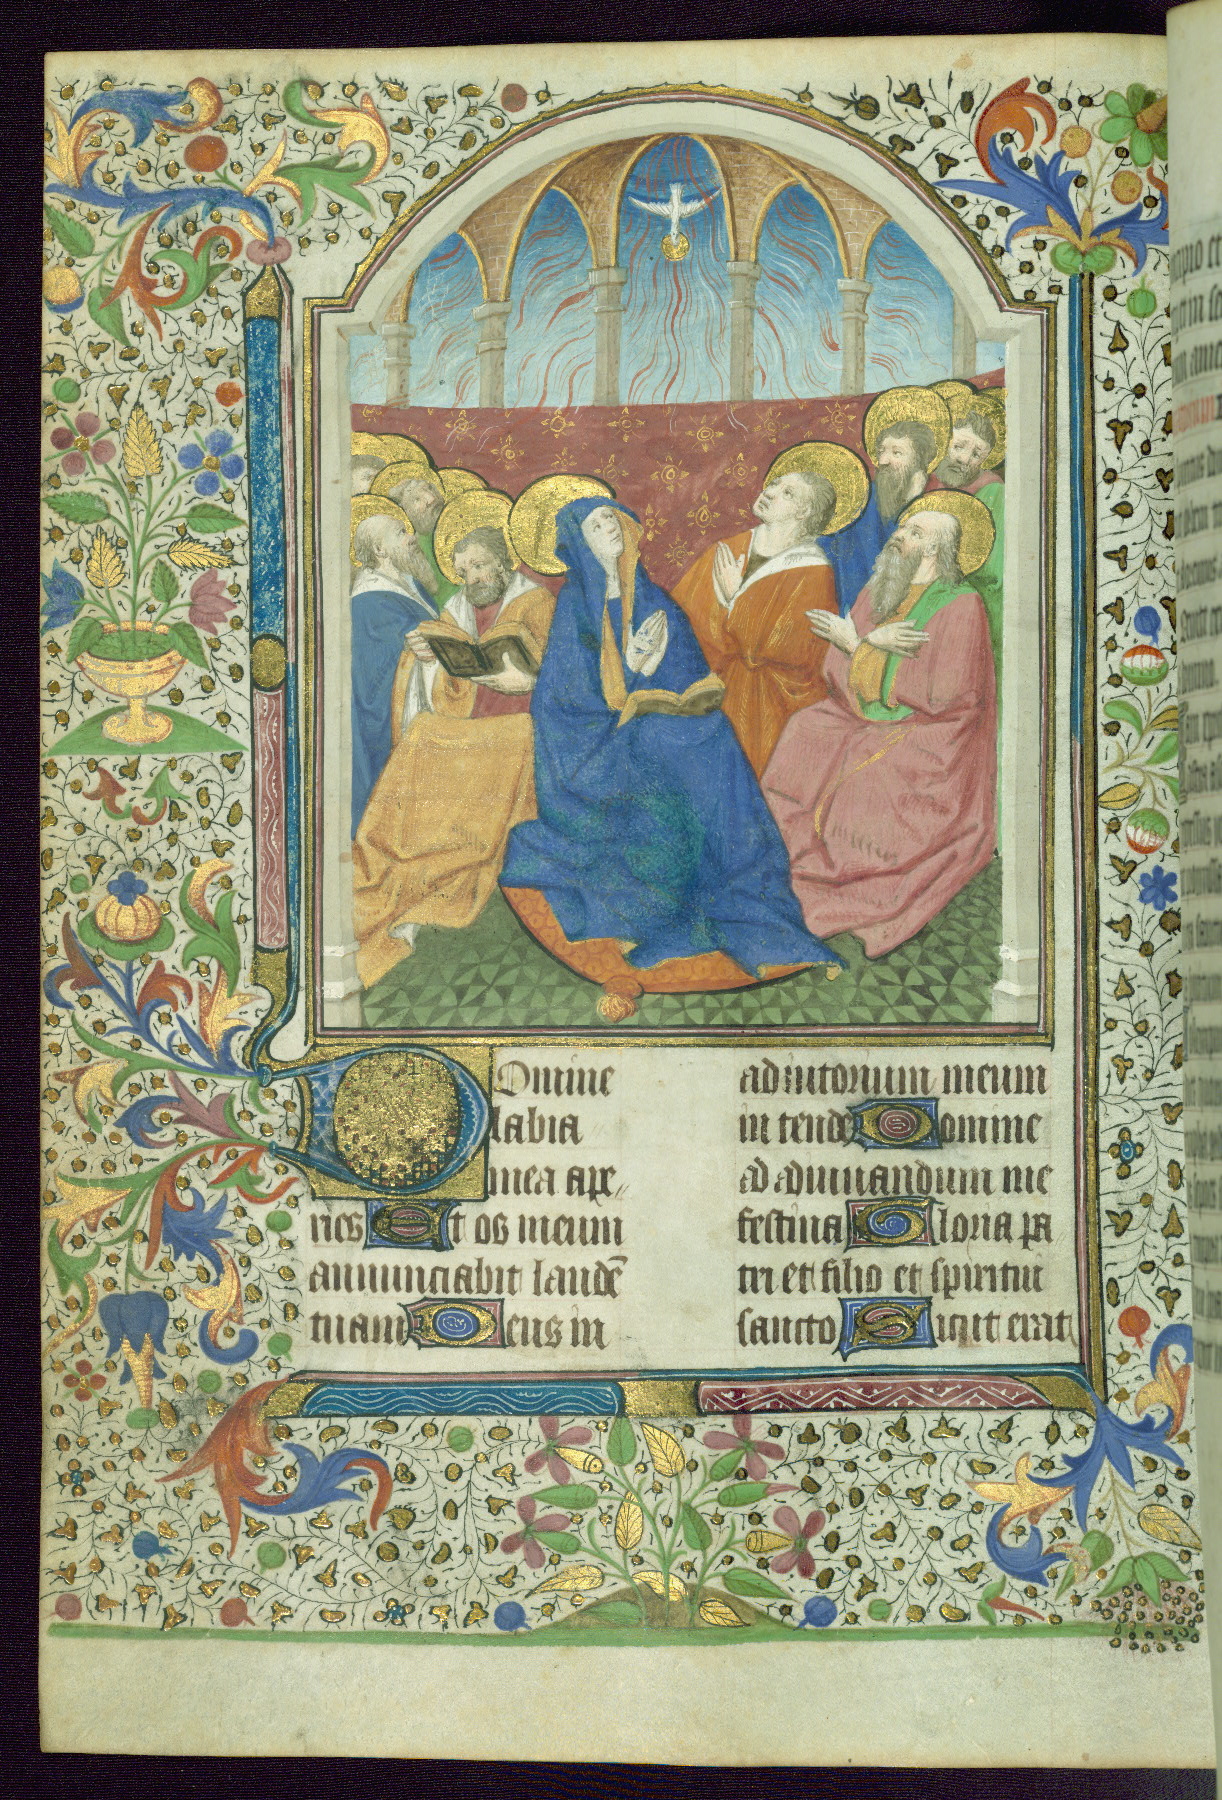 Domine
labia
mea ape
ries Et os meum
annunciabit laudē
tuam Deus in
adiutorium meum
in tende Domine
ad adiuuandum me
festina Gloria pa
tri et filio et spiritui
sancto Sicut erat